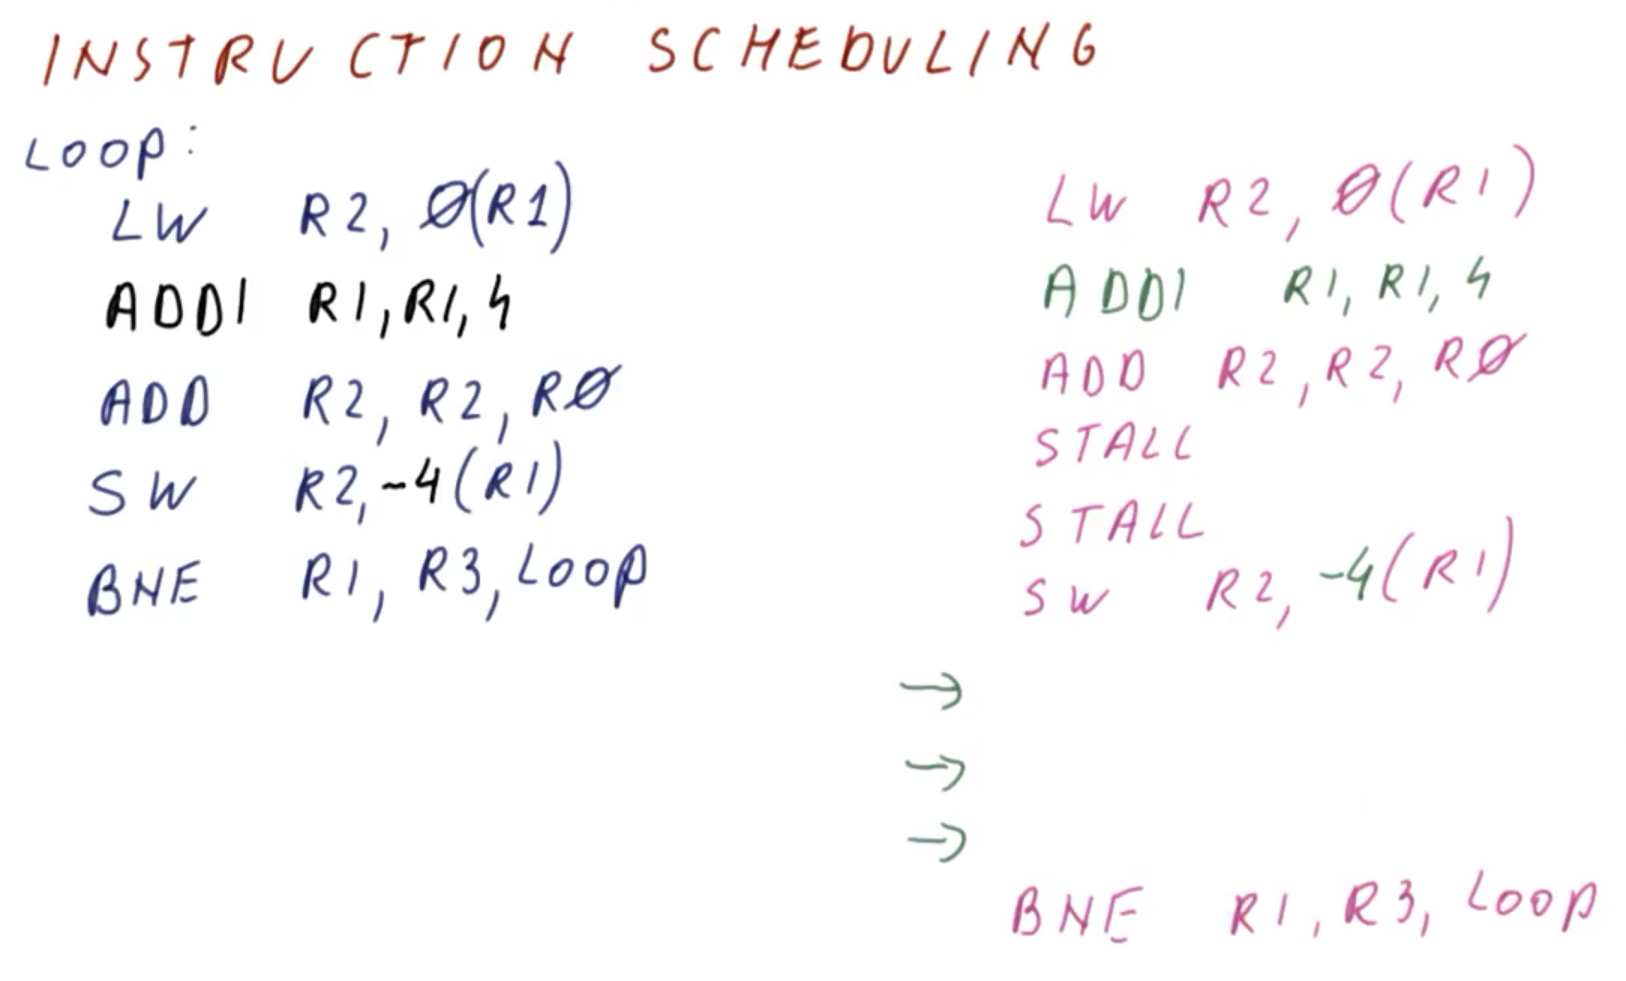 INSTRUCTION SCHEDULING
LOOP:
LW R2, 0(R1)
ADDI R1, R1, 4
ADD R2, R2, R0
SW R2, -4(R1)
BNE R1, R3, LOOP
LW R2, 0(R1)
ADDI R1, R1, 4
ADD R2, R2, R0
STALL
STALL
SW R2, -4(R1)
→
→
→
BNE R1, R3, LOOP